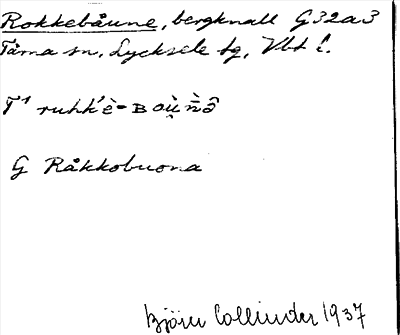 Rokkebåune, bergknall G32a3
Tärna sn, Lycksele lg, Vbt l.
T¹ ruhk'e-B
G Råkkobuona
Björn Collinder 1937